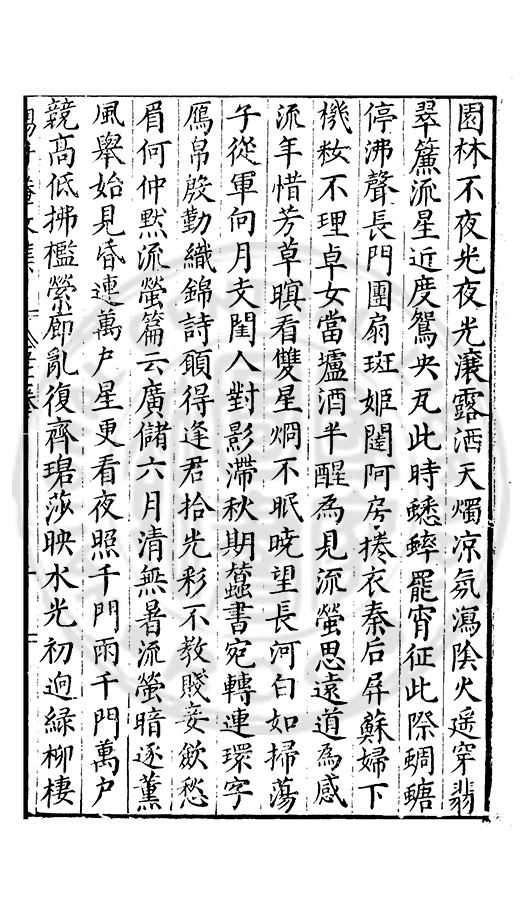 園林不夜光夜光瀼露洒天燭凉氛瀉陰火遥穿翡
翠簾流星近度鴛央瓦此時蟋蟀罷宵征此際蜩螗
停沸聲長門團扇班姬閨阿房捲衣秦后屏蘇婦下
機粧不理卓女當壚酒半醒為見流螢思遠道為感
流年惜芳草暝看雙星烱不眠暁望長河白如掃蕩
子從軍向月支閨人對影滯秋期蠶書宛轉連環字
鴈帛殷勤織錦詩願得逢君拾光彩不教賤妾歛愁
眉何仲默流螢篇云廣儲六月清無暑流螢暗逐薫
風舉始見昏連萬户星更看夜照千門雨千門萬户
競高低拂檻縈廊亂復齊珺莎映水光初迥緑柳棲